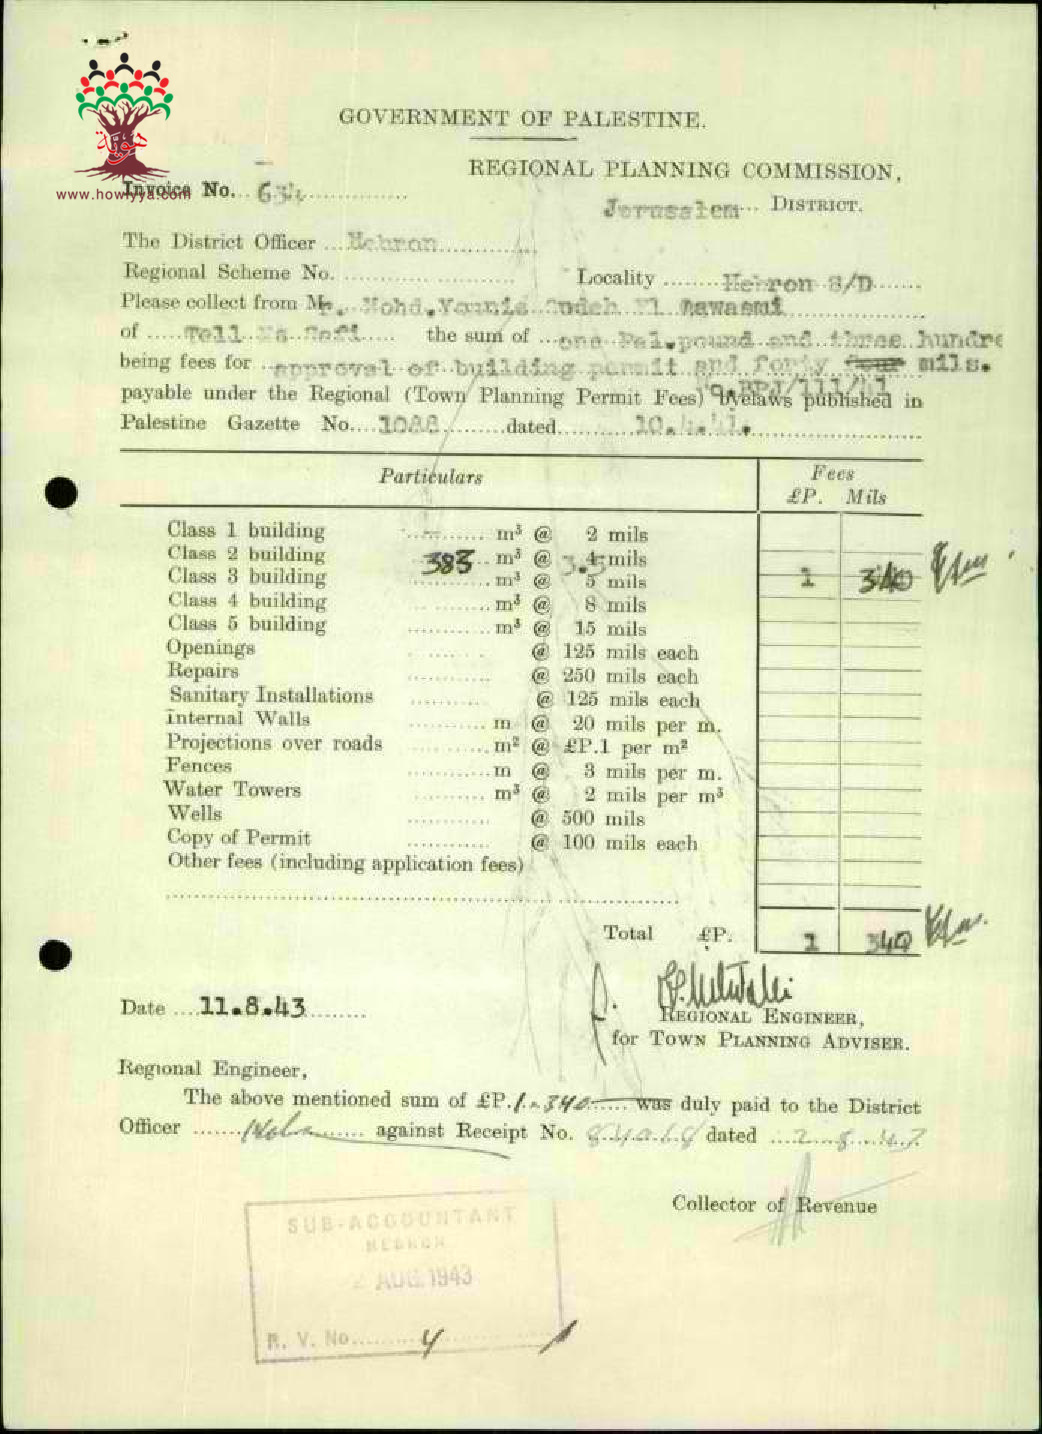 هوية
www.howiyya.com
GOVERNMENT OF PALESTINE.
REGIONAL PLANNING COMMISSION,
Invoice No.
Jerusalem DISTRICT.
The District Officer ... Hebron
Regional Scheme No. ..........
Locality ........ Hebron S/D
Please collect from Mr. Mohd. Younis Oudeh El
of ..... Tell Es Safi ..... the sum of ... one Pal. pound and three hundre
being fees for .. approval of building permit and forty four mils.
payable under the Regional (Town Planning Permit Fees) Byelaws published in
Palestine Gazette No. ... 1088 ........ dated ........ 10.4.41.
Particulars
Fees
£P. Mils
Class 1 building .......... m³ @ 2 mils
Class 2 building 383 .. m³ @ 4 3.5 mils
Class 3 building .......... m³ @ 5 mils 1 340
Class 4 building .......... m³ @ 8 mils
Class 5 building .......... m³ @ 15 mils
Openings .......... @ 125 mils each
Repairs .......... @ 250 mils each
Sanitary Installations .......... @ 125 mils each
Internal Walls .......... m @ 20 mils per m.
Projections over roads .......... m² @ £P.1 per m²
Fences .......... m @ 3 mils per m.
Water Towers .......... m³ @ 2 mils per m³
Wells .......... @ 500 mils
Copy of Permit .......... @ 100 mils each
Other fees (including application fees)
Total £P. 1 340
Date .... 11.8.43 ........
REGIONAL ENGINEER,
for TOWN PLANNING ADVISER.
Regional Engineer,
The above mentioned sum of £P. 1.340 ...... was duly paid to the District
Officer ....... against Receipt No. dated
Collector of Revenue
SUB-ACCOUNTANT
HEBRON
2 AUG 1943
R. V. No. .......... 4